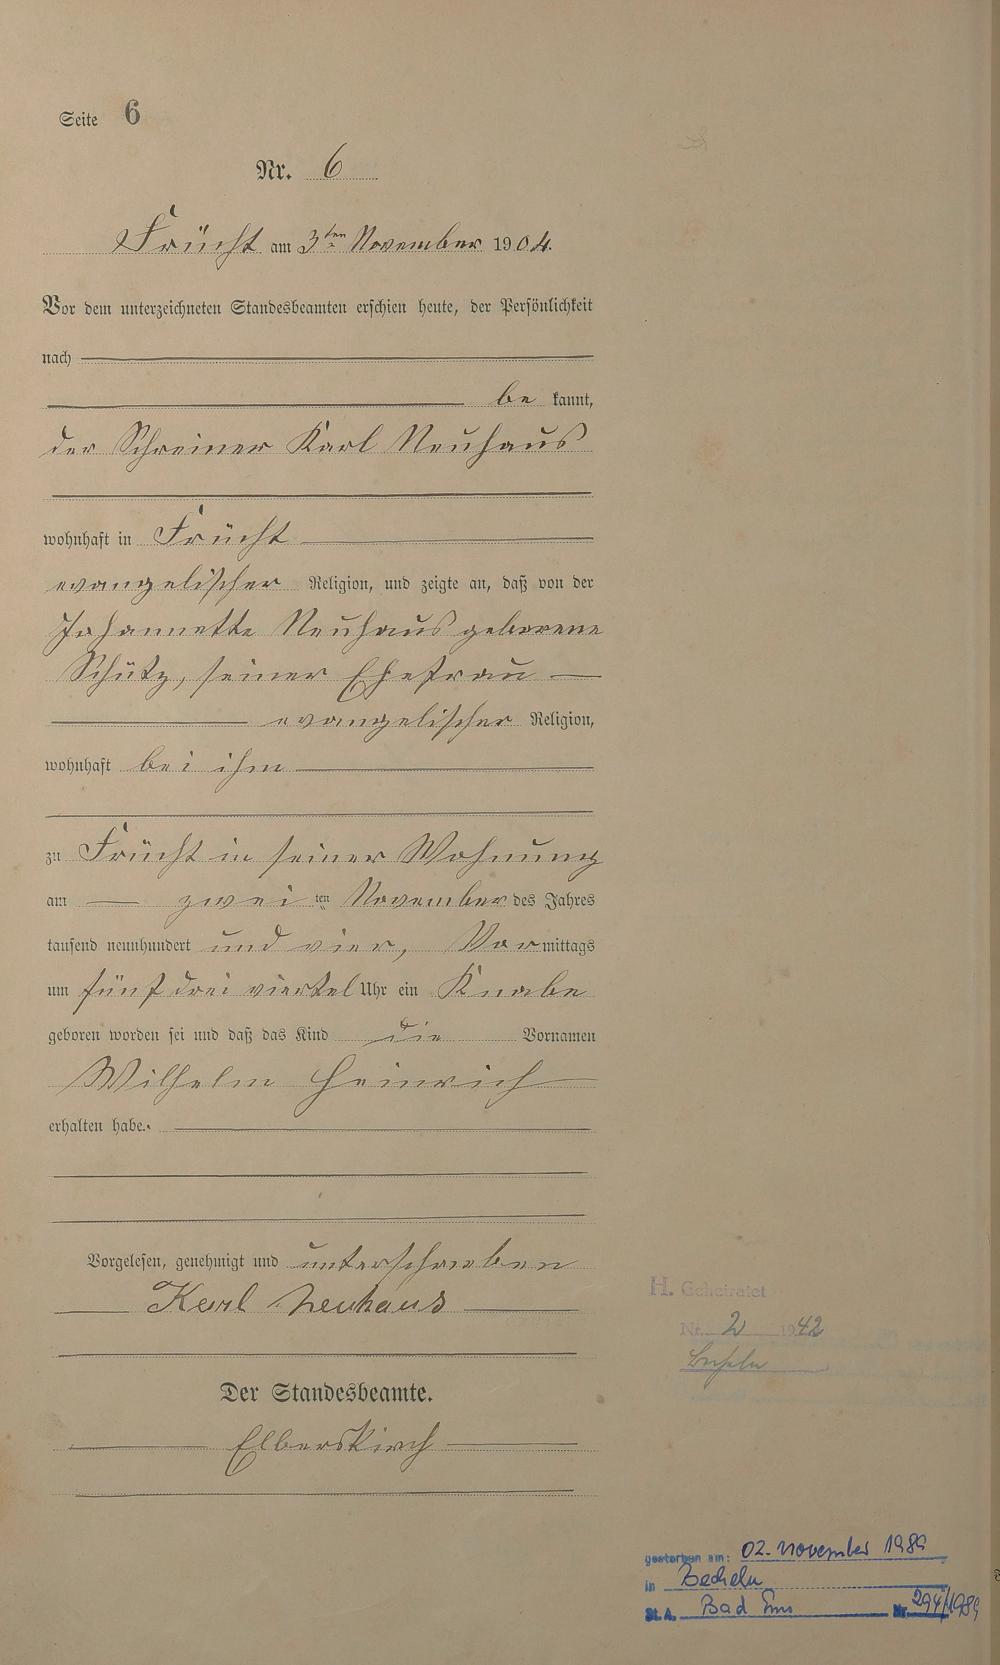 Seite 6
Nr. 6
Frücht am 3ten November 1904.
Vor dem unterzeichneten Standesbeamten erschien heute, der Persönlichkeit
nach
be kannt,
der Schreiner Karl Neuhaus
wohnhaft in Frücht
evangelischer Religion, und zeigte an, daß von der
Johannette Neuhaus geborene
Schütz, seiner Ehefrau
evangelischer Religion,
wohnhaft bei ihm
zu Frücht in seiner Wohnung
am zwei ten November des Jahres
tausend neunhundert und vier, Vormittags
um fünf drei viertel Uhr ein Knabe
geboren worden sei und daß das Kind die Vornamen
Wilhelm Heinrich
erhalten habe.
Vorgelesen, genehmigt und unterschrieben
Karl Neuhaus
Der Standesbeamte.
Elberskirch
H. Geheiratet
Nr. 2 1942
Becheln
gestorben am: 02. November 1989
in Becheln
St.A. Bad Ems Nr. 294/1989